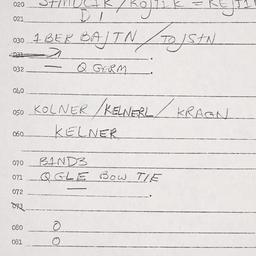 020 STAMDCIK / KOJTIK = KEJTI
021 D I
030 IBER BAJTN / TOJSTN
031
032 — Q GERM.
040
050 KOLNER / KELNERL / KRAGN
060 KELNER
070 BIND3
071 QGLE BOW TIE
072
073
080 0
081 0